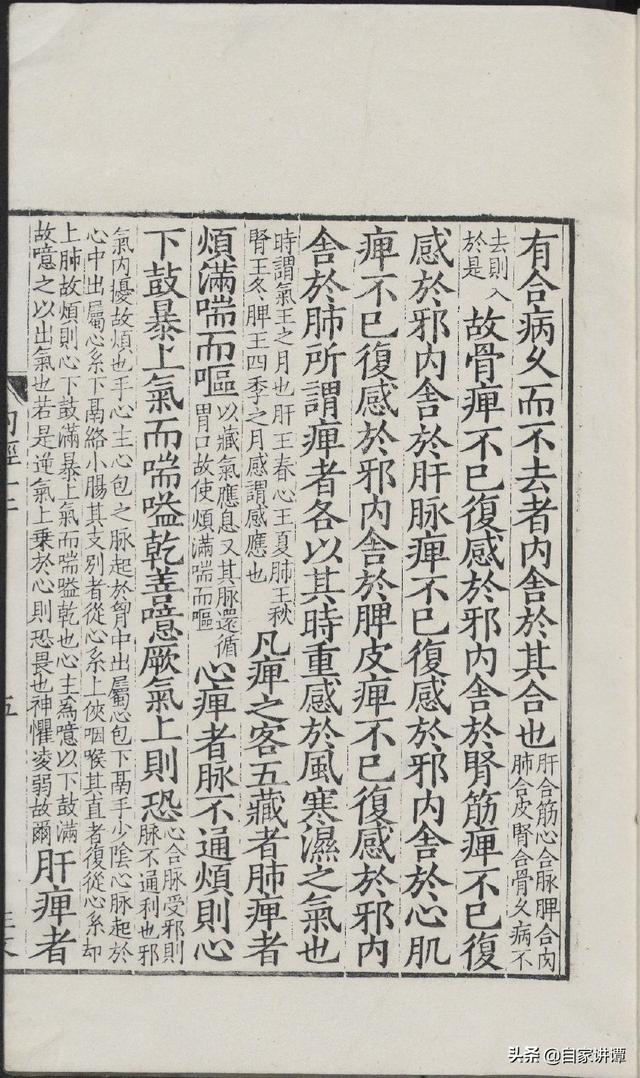 有合病久而不去者内舍於其合也肝合筋心合脉脾合肉
肺合皮腎合骨久病不
去則入
於是故骨痺不已復感於邪内舍於腎筋痺不已復
感於邪内舍於肝脉痺不已復感於邪内舍於心肌
痺不已復感於邪内舍於脾皮痺不已復感於邪内
舍於肺所謂痺者各以其時重感於風寒濕之氣也
時謂氣王之月也肝王春心王夏肺王秋
腎王冬脾王四季之月感謂感應也凡痺之客五藏者肺痺者
煩滿喘而嘔以藏氣應息又其脉還循
胃口故使煩滿喘而嘔心痺者脉不通煩則心
下鼓暴上氣而喘嗌乾善噫厥氣上則恐心合脉受邪則
脉不通利也邪
氣内擾故煩也手心主心包之脉起於胷中出屬心包下鬲手少陰心脉起於
心中出屬心系下鬲絡小腸其支别者從心系上俠咽喉其直者復從心系却
上肺故煩則心下鼓滿暴上氣而喘嗌乾也心主為噫以下鼓滿
故噫之以出氣也若是逆氣上乗於心則恐畏也神懼凌弱故爾肝痺者
内經十二
五
头条 @自家讲谭